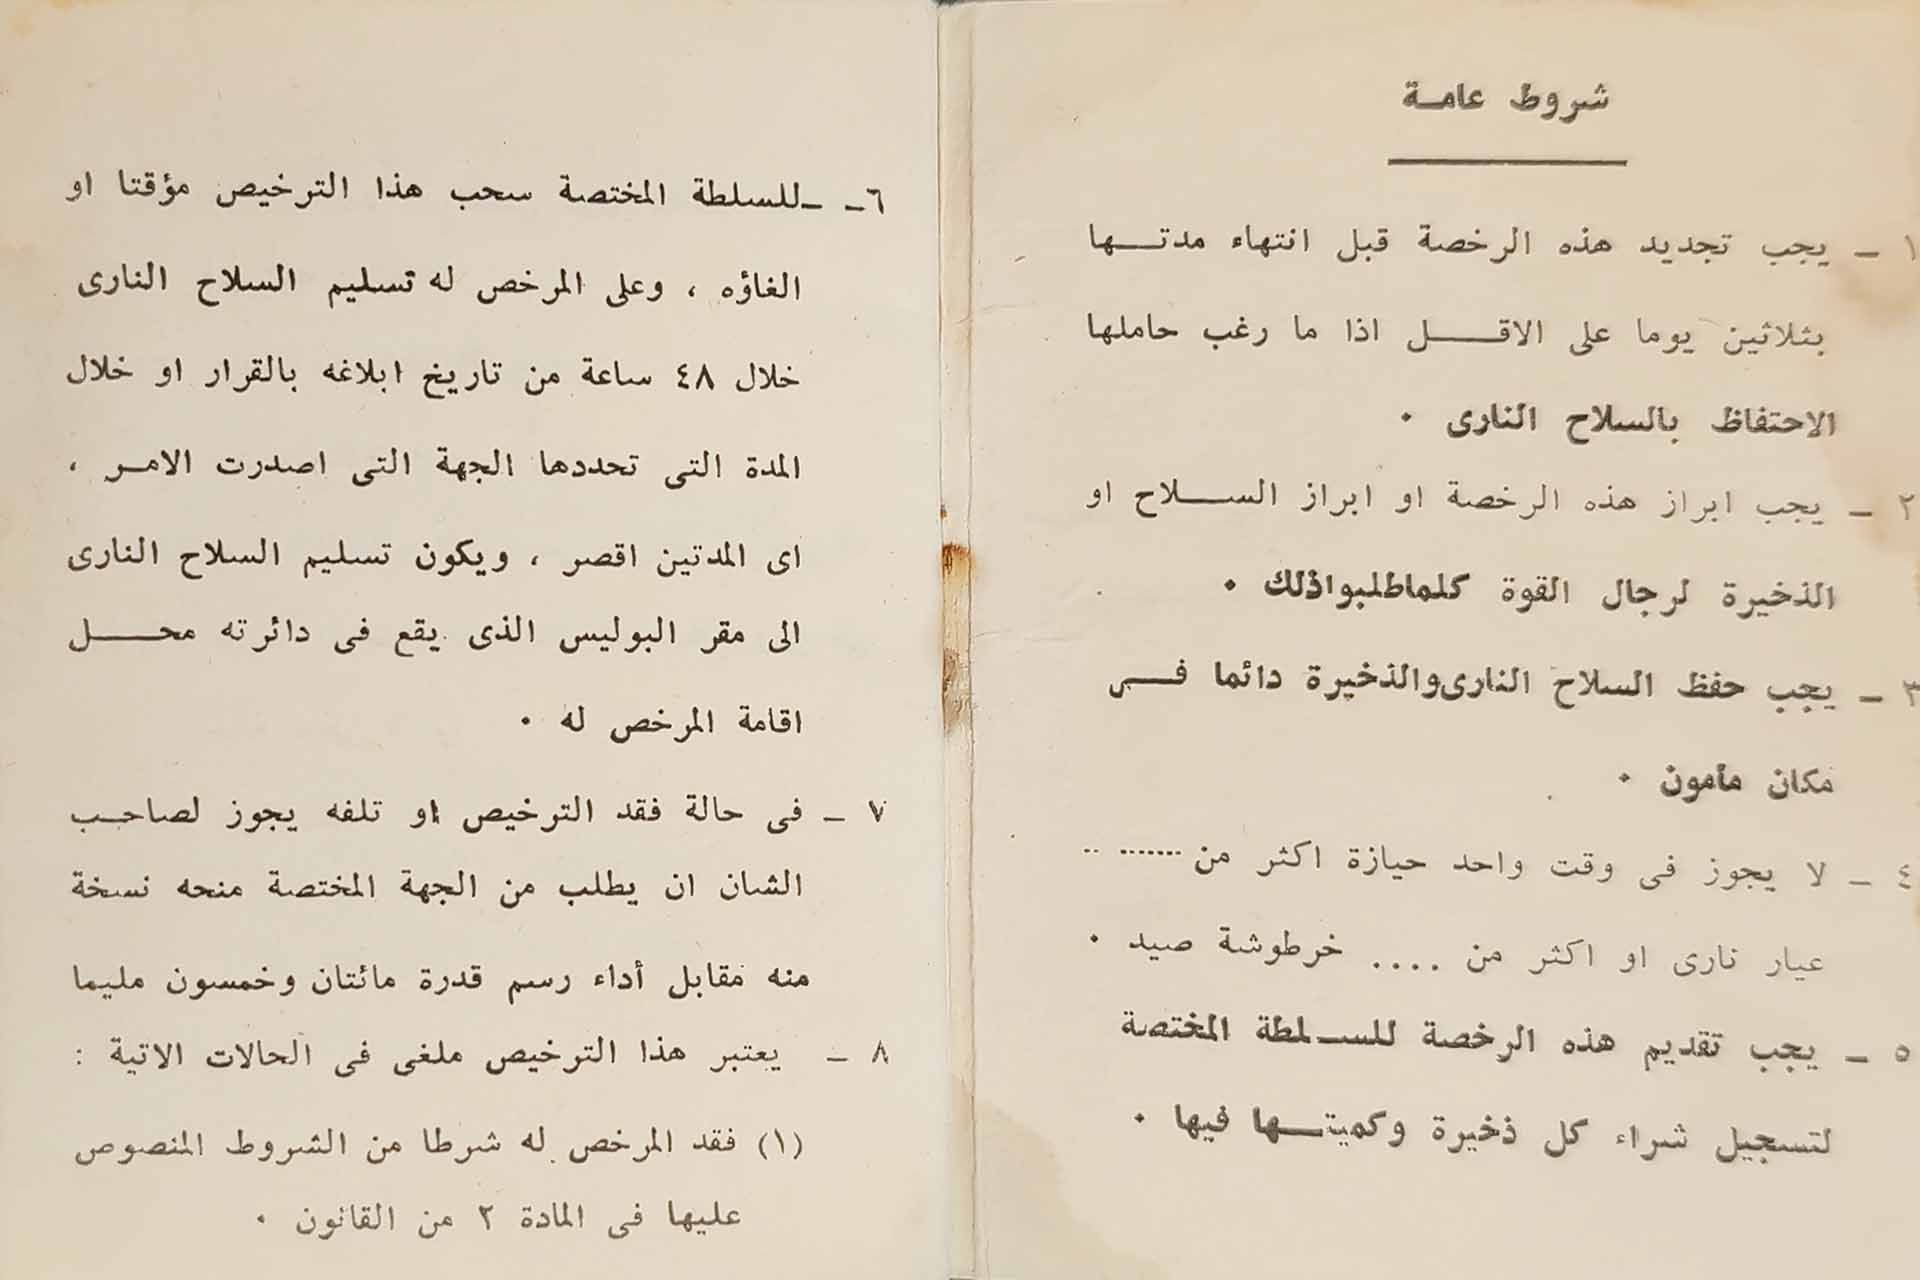 شروط عامة
١ - يجب تجديد هذه الرخصة قبل انتهاء مدتها
بثلاثين يوما على الاقل اذا ما رغب حاملها
الاحتفاظ بالسلاح النارى .
٢ - يجب ابراز هذه الرخصة او ابراز السلاح او
الذخيرة لرجال القوة كلما طلبوا ذلك .
٣ - يجب حفظ السلاح النارى والذخيرة دائما فى
مكان مأمون .
٤ - لا يجوز فى وقت واحد حيازة اكثر من ....... ..
عيار نارى او اكثر من .... خرطوشة صيد .
٥ - يجب تقديم هذه الرخصة للسلطة المختصة
لتسجيل شراء كل ذخيرة وكميتها فيها .
٦ - للسلطة المختصة سحب هذا الترخيص مؤقتا او
الغاؤه ، وعلى المرخص له تسليم السلاح النارى
خلال ٤٨ ساعة من تاريخ ابلاغه بالقرار او خلال
المدة التى تحددها الجهة التى اصدرت الامر ،
اى المدتين اقصر ، ويكون تسليم السلاح النارى
الى مقر البوليس الذى يقع فى دائرته محل
اقامة المرخص له .
٧ - فى حالة فقد الترخيص او تلفه يجوز لصاحب
الشان ان يطلب من الجهة المختصة منحه نسخة
منه مقابل أداء رسم قدرة مائتان وخمسون مليما
٨ - يعتبر هذا الترخيص ملغى فى الحالات الاتية :
(١) فقد المرخص له شرطا من الشروط المنصوص
عليها فى المادة ٢ من القانون .